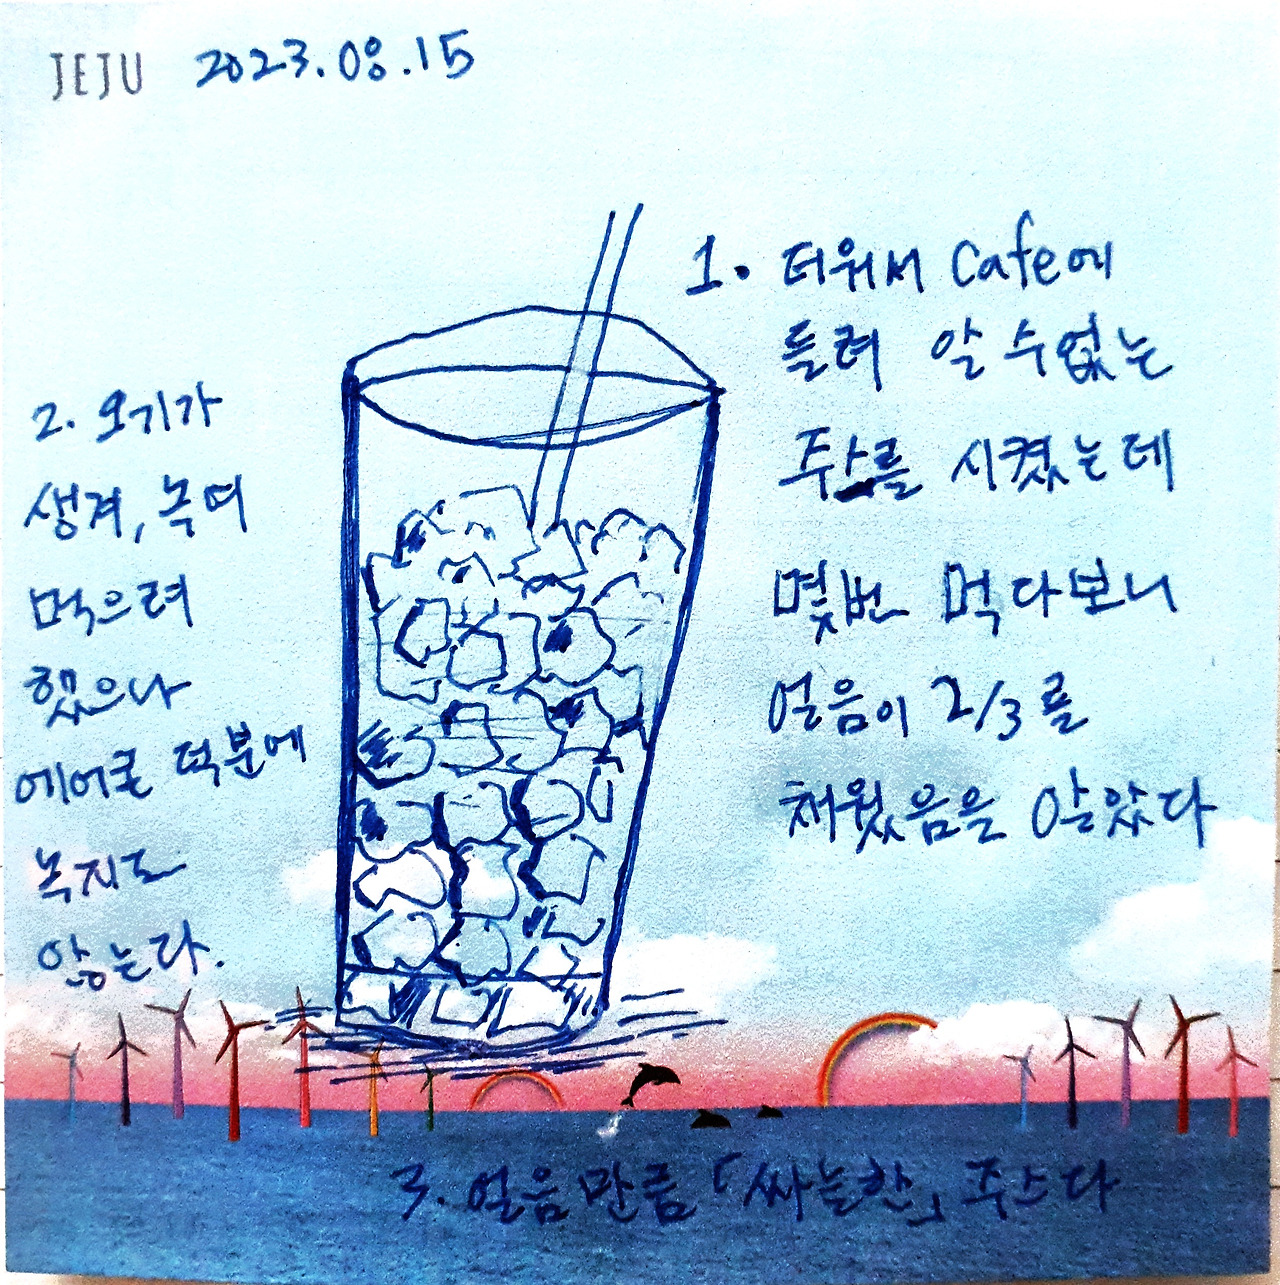 JEJU 2023.08.15
1. 더워서 Cafe에
들려 알 수 없는
주스를 시켰는데
몇번 먹다보니
얼음이 2/3를
채웠음을 알았다
2. 오기가
생겨, 녹여
먹으려
했으나
에어콘 덕분에
녹지도
않는다.
3. 얼음만큼 「싸늘한」 주스다